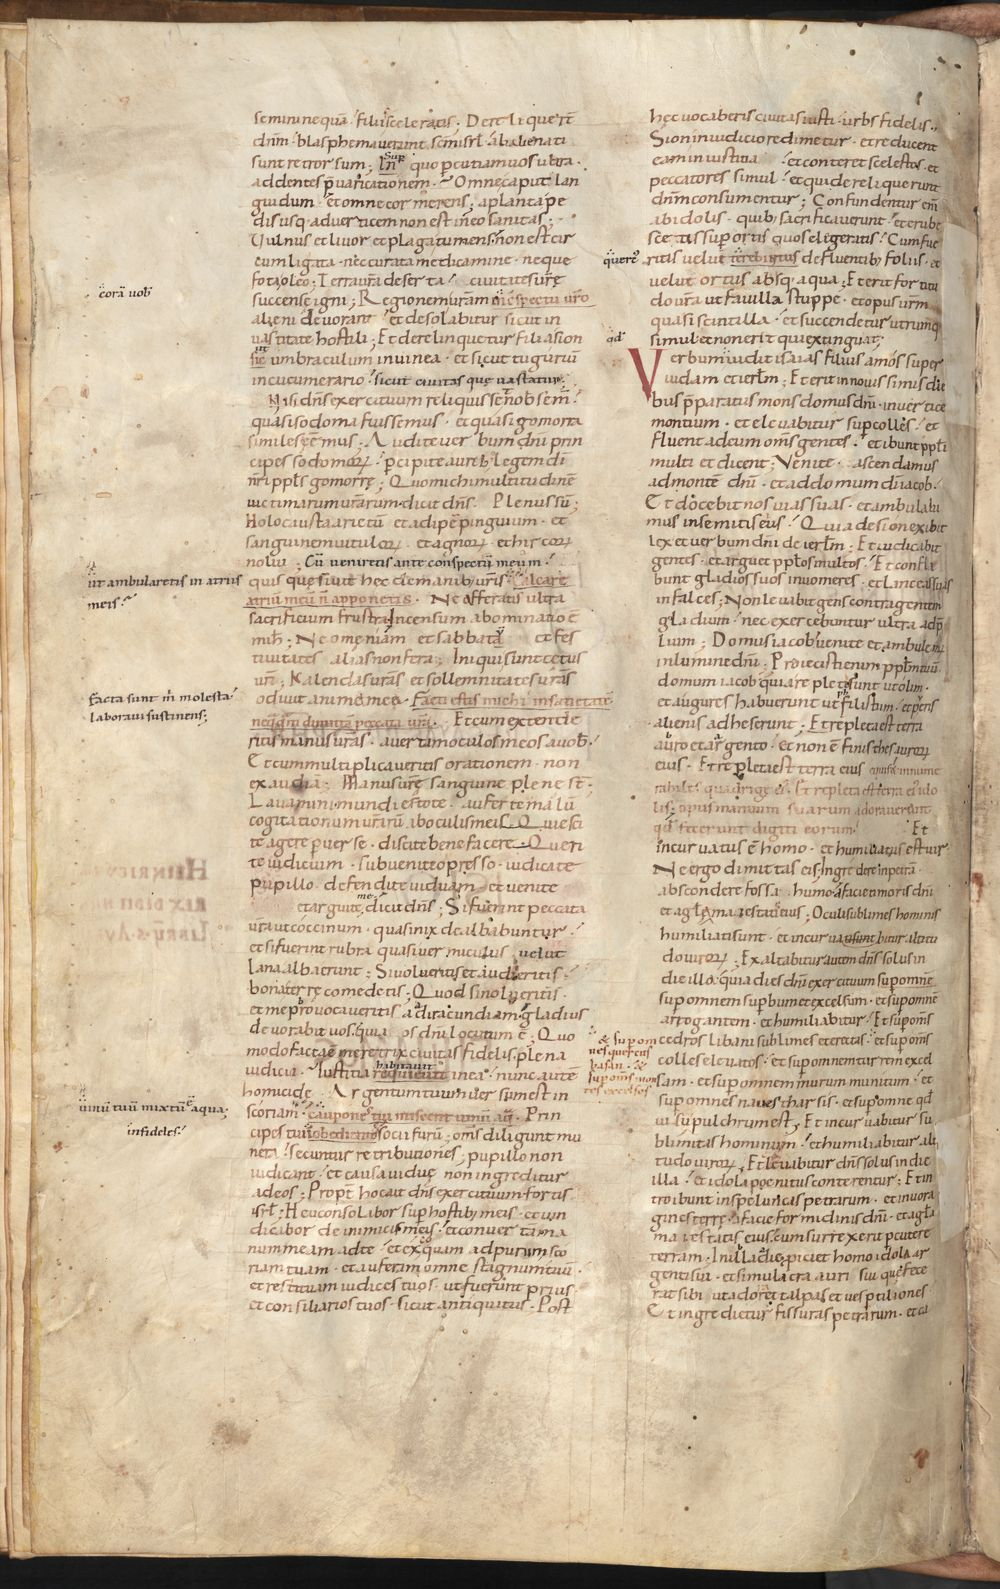 semini nequā · filii sceleratis · Dereliquer̄t
dn̄m · blasphemaverunt sc̄m isrl̄ · abalienati
sunt retrorsum ; In̄ quo percutiam vos ultra ·
addentes p̄varicationem · Omne caput lan
guidum · et omne cor merens ; a planta pe
dis usq; ad verticem non est in eo sanitas ;
Vulnus et livor et plaga tumens · non est cir
cumligata · nec curata medicamine · neque
fota oleo ; Terra vr̄a deserta · civitates vr̄ę
succense igni ; Regionem vr̄am in cspectu vr̄o
alieni devorant · et desolabitur sicut in
vastitate hostili ; Et derelinquetur filia sion
ut umbraculum in vinea · et sicut tugurium
in cucumerario · sicut civitas quę vastatur ·
Nisi dn̄s exercituum reliquisset nob semē ·
quasi sodoma fuissemus · et quasi gomorra
similes eēmus · Audite verbum dn̄i prin
cipes sodomorꝝ · percipite aurib; legem dī
nr̄i ppl̄s gomorrę ; Quo michi multitudinē
victimarum vr̄arum · dicit dn̄s · Plenus sū ;
Holocausta arietū et adipē pinguium · et
sanguinem vitulorꝝ · et agnorꝝ et hircorꝝ
nolui · Cū veniretis ante conspectū meum ·
quis quęsivit hec de manib; vr̄is · calcare
atriū meū n̄ apponetis · Ne offeratis ultra
sacrificium frustra · Incensum abominatio ē
mih̄ · Neomeniam et sabbata et fes
tivitates alias non fera ; Iniqui sunt cetus
vr̄i · Kalendas vr̄as et sollemnitates vr̄as
odivit anima mea · Facta estis michi in satietatē
Et cum extende
ritis manus vr̄as · avertam oculos meos a vob ·
Et cum multiplicaveritis orationem · non
exaudiā · Manus vr̄ę sanguine plenę st̄ ·
Lavamini mundi estote · auferte malū
cogitationum vr̄arū ab oculis meis · Quiesci
te agere perverse · discite benefacere · Queri
te iudicium · subvenite oppresso · iudicate
pupillo · defendite viduam · et venite
et arguite me dicit dn̄s ; Si fuerint peccata
vr̄a ut coccinum · quasi nix dealbabuntur ·
et si fuerint rubra quasi vermiculus velut
lana alba erunt ; Si volueritis et audieritis ·
bona terrę comedetis ; Quod si nolueritis ·
et me provocaveritis ad iracundiam · gladius
devorabit vos · quia os dn̄i locutum ē ; Quo
modo facta ē meretrix civitas fidelis · plena
iudicii · iustitia habitavit in ea · nunc autē
homicidę · Argentum tuum versum est in
scoriam · caupones tui miscent vinum aq̄ · Prin
cipes tui socii furū ; om̄s diligunt mu
nera · secuntur retributiones ; pupillo non
iudicant · et causa viduę non ingreditur
ad eos ; Propt̄ hoc ait dn̄s exercituum fortis
isrl̄ ; Heu consolabor sup hostib; meis · et vin
dicabor de inimicis meis · et convertā ma
num meam ad te · et excoquam ad purum sco
riam tuam · et auferam omne stagnum tuū ·
et restituam iudices tuos · ut fuerunt prius ·
et consiliarios tuos · sicut antiquitus · Post
corā vob
ut ambularetis in atriis
meis ·
facta sunt m̄ molesta
laboravi sustinens ;
vinū tuū mixtū ē aqua ;
infideles ·
hęc vocaberis civitas iusti · urbs fidelis ·
Sion in iudicio redimetur · et reducent
eam in iustitia · et conteret scelestos · et
peccatores simul · et qui dereliquerunt
dn̄m consumentur ; Confundentur enī
ab idolis · quib; sacrificaverunt · et erube
scetis sup ortis quos elegeratis · Cum fue
ritis velut terebintus defluentib; foliis · et
velut ortus absq; aqua ; Et erit fortitu
do vr̄a ut favilla stuppe · et opus vr̄m
quasi scintilla · et succendetur utrumq;
simul et non erit qui extinguat ;
quere
qd̄
Verbum quod vidit isaias filius amos super
iudam et ierl̄m ; Et erit in novissimis die
bus p̄paratus mons domus dn̄i · in vertice
montium · et elevabitur sup colles · et
fluent ad eum om̄s gentes · et ibunt ppl̄i
multi et dicent ; Venite · ascendamus
ad montē dn̄i · et ad domum dī iacob ·
Et docebit nos vias suas · et ambulabi
mus in semitis eius · Quia de sion exibit
lex et verbum dn̄i de ierl̄m ; Et iudicabit
gentes · et arguet ppl̄os multos · Et confla
bunt gladios suos in vomeres · et lanceas suas
in falces ; Non levabit gens contra gentem
gladium · nec exercebuntur ultra ad p̄
lium ; Domus iacob venite et ambulemus
in lumine dn̄i ; Proiecisti enim ppl̄m tuū
domum iacob · quia repleti sunt ut olim ·
et augures habuerunt ut philistiim · et pueris
alienis adheserunt · Et repleta est terra
auro et argento · et non ē finis thesaurorꝝ
eius · Et repleta est terra eius equis · et innume
rabiles quadrigę eius · Et repleta est terra eius ido
lis ; opus manuum suarum adoraverunt
qd̄ fecerunt digiti eorum · Et
incurvatus ē homo · et humiliatus est vir ·
Ne ergo dimittas eis · Ingredere in petrā ·
abscondere fossa humo a facie timoris dn̄i
et a gl̄a maiestatis eius ; Oculi sublimes hominis
humiliati sunt · et incurvabitur altitu
do virorꝝ ; Exaltabitur autem dn̄s solus in
die illa · quia dies dn̄i exercituum sup omnē
superbum et excelsum · et sup omnē
arrogantem · et humiliabitur · Et sup om̄s
cedros libani sublimes et erectas · et sup om̄s
colles elevatos · et sup omnem turrem excel
sam · et sup omnem murum munitum · et
sup omnes naves tharsis · et sup omne qd̄
visu pulchrum est ; Et incurvabitur su
blimitas hominum · et humiliabitur alti
tudo virorꝝ · Et elevabitur dn̄s solus in die
illa · et idola penitus conterentur ; Et in
troibunt in speluncas petrarum · et in vora
gines terrę · a facie formidinis dn̄i · et a gl̄a
maiestatis eius · cum surrexerit pcutere
terram · In illa die piciet homo idola ar
genti sui · et simulacra auri sui · quę fece
rat sibi ut adoret talpas et vespertiliones ·
Et ingredietur fissuras petrarum · et ca
& sup om
nes quercus
basan · &
sup om̄s mon
tes excelsos